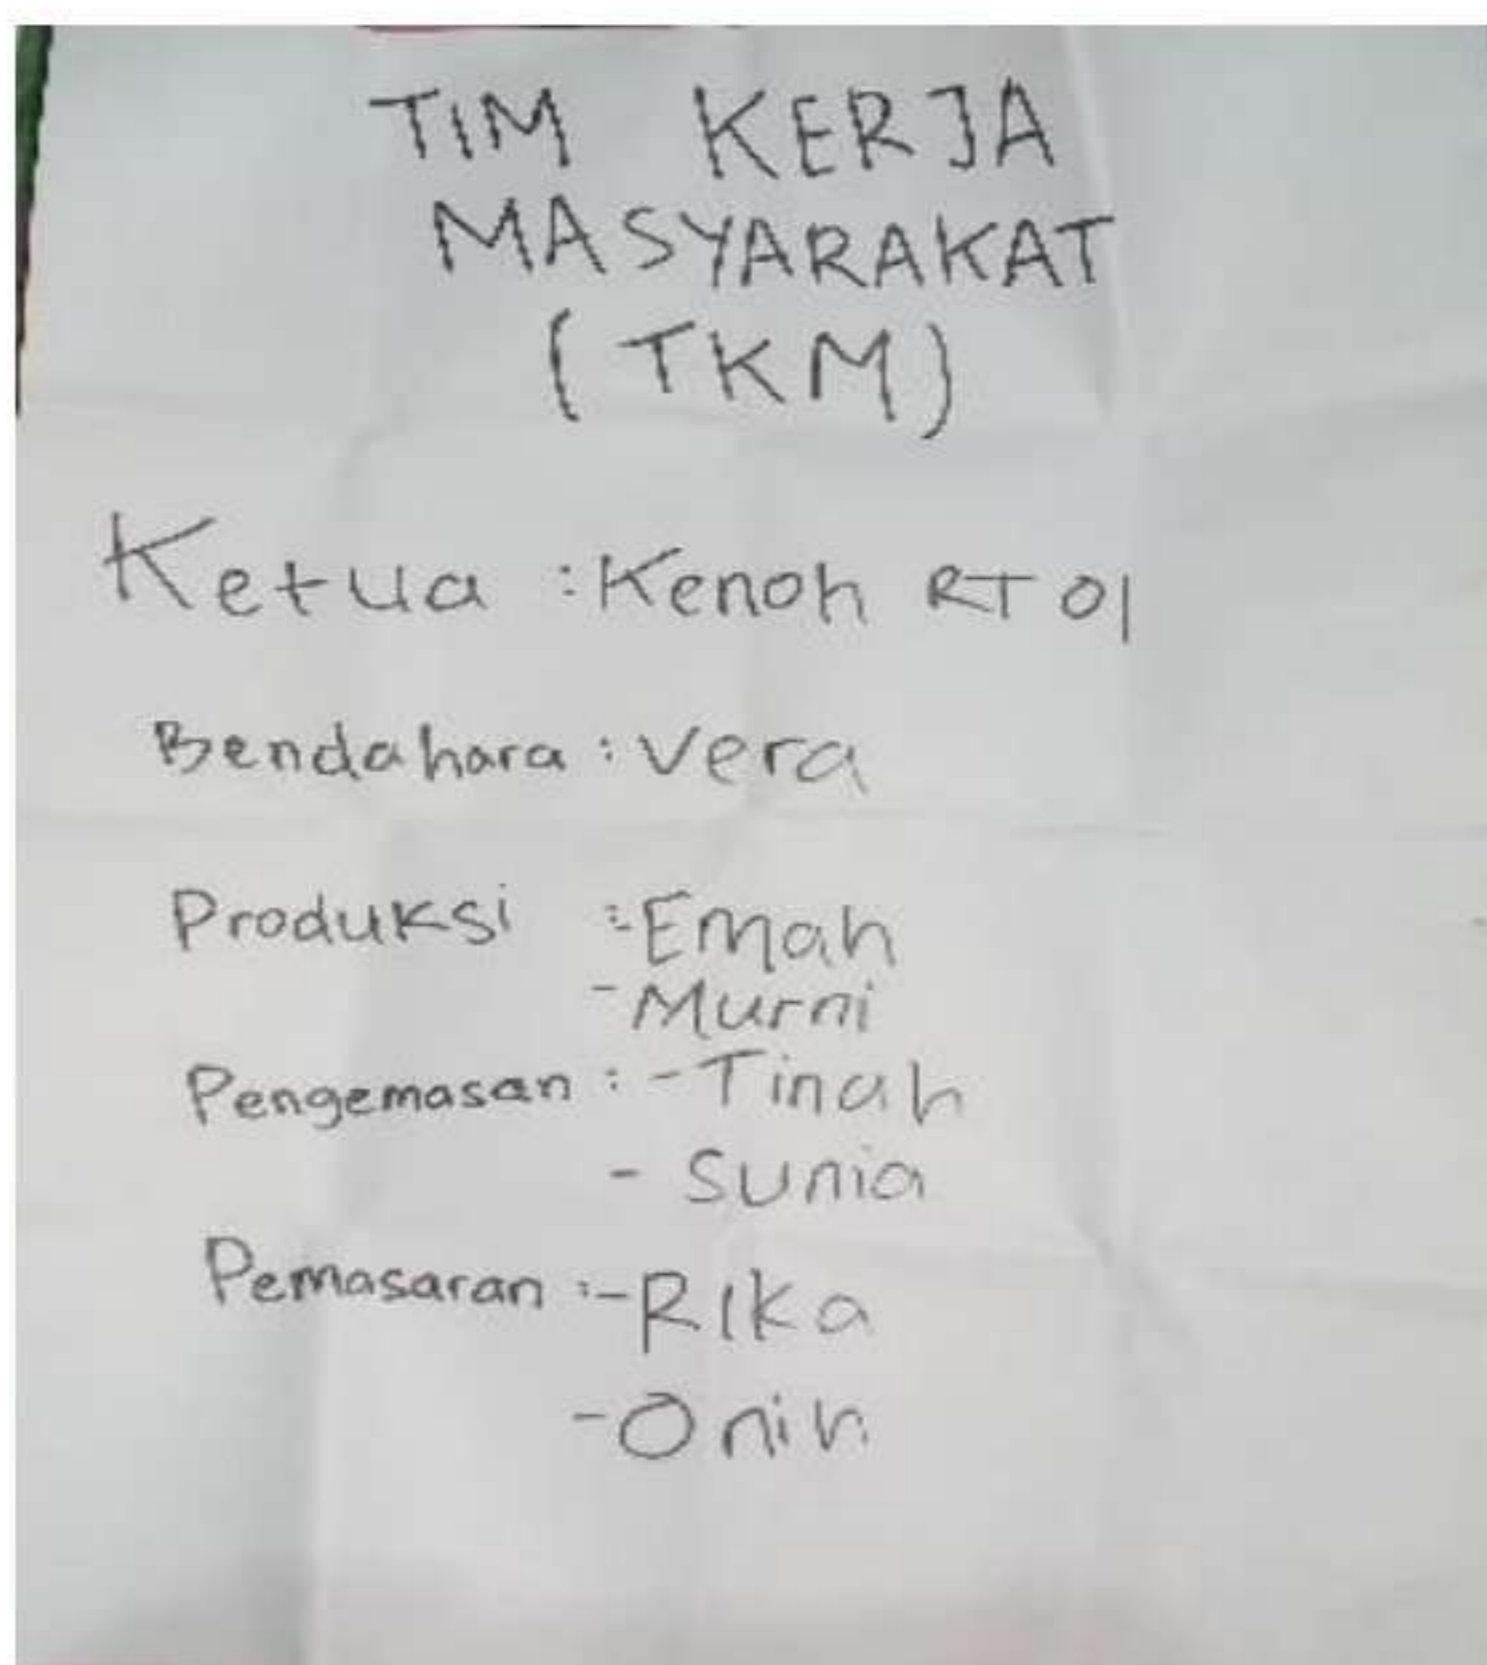 TIM KERJA
MASYARAKAT
(TKM)
Ketua : Kenoh RT 01
Bendahara : Vera
Produksi :- Emah
- Murni
Pengemasan : - Tinah
- Sunia
Pemasaran :- Rika
- Onih